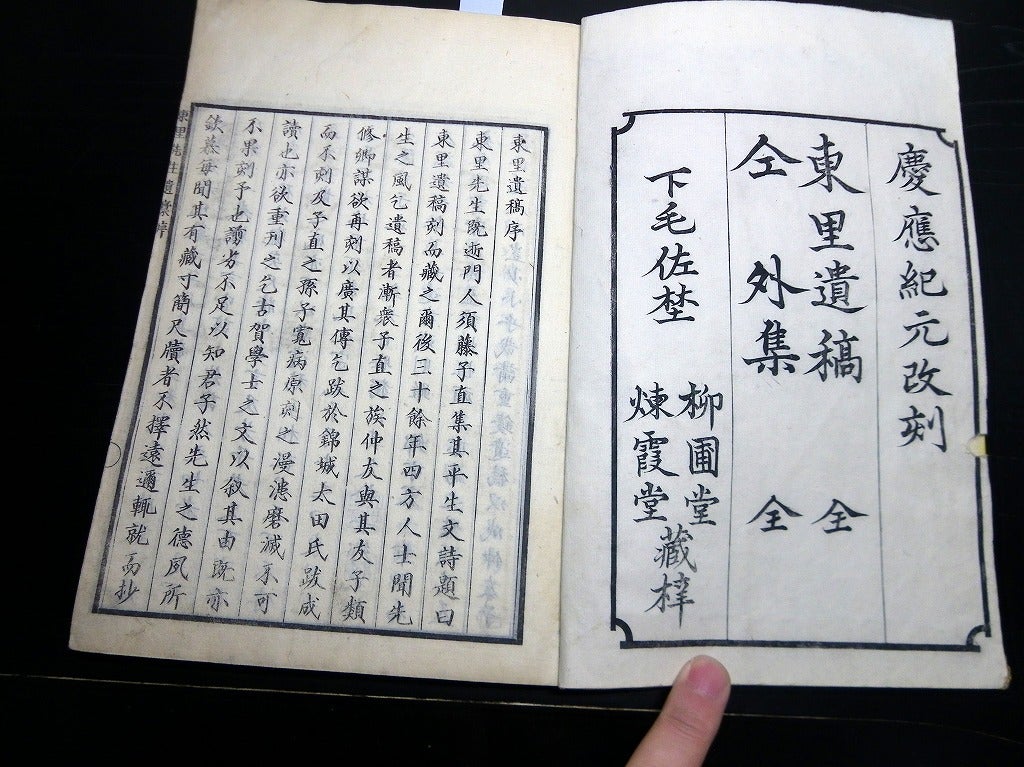 慶應紀元改刻
東里遺稿 全
仝 外集 全
下毛佐埜 柳圃堂
煉霞堂 藏梓
東里遺稿序
東里先生既逝門人須藤子直集其平生文詩題曰
東里遺稿刻而藏之爾後三十餘年四方人士聞先
生之風乞遺稿者漸衆子直之族仲友與其友子類
修鄉謀欲再刻以廣其傳乞跋於錦城太田氏跋成
而不刻及子直之孫子寬病原刻之漫漶磨滅不可
讀也亦欲重刊之乞古賀學士之文以叙其由既亦
不果刻予也謭劣不足以知君子然先生之德夙所
欽慕每聞其有藏寸簡尺牘者不擇遠邇輒就而抄